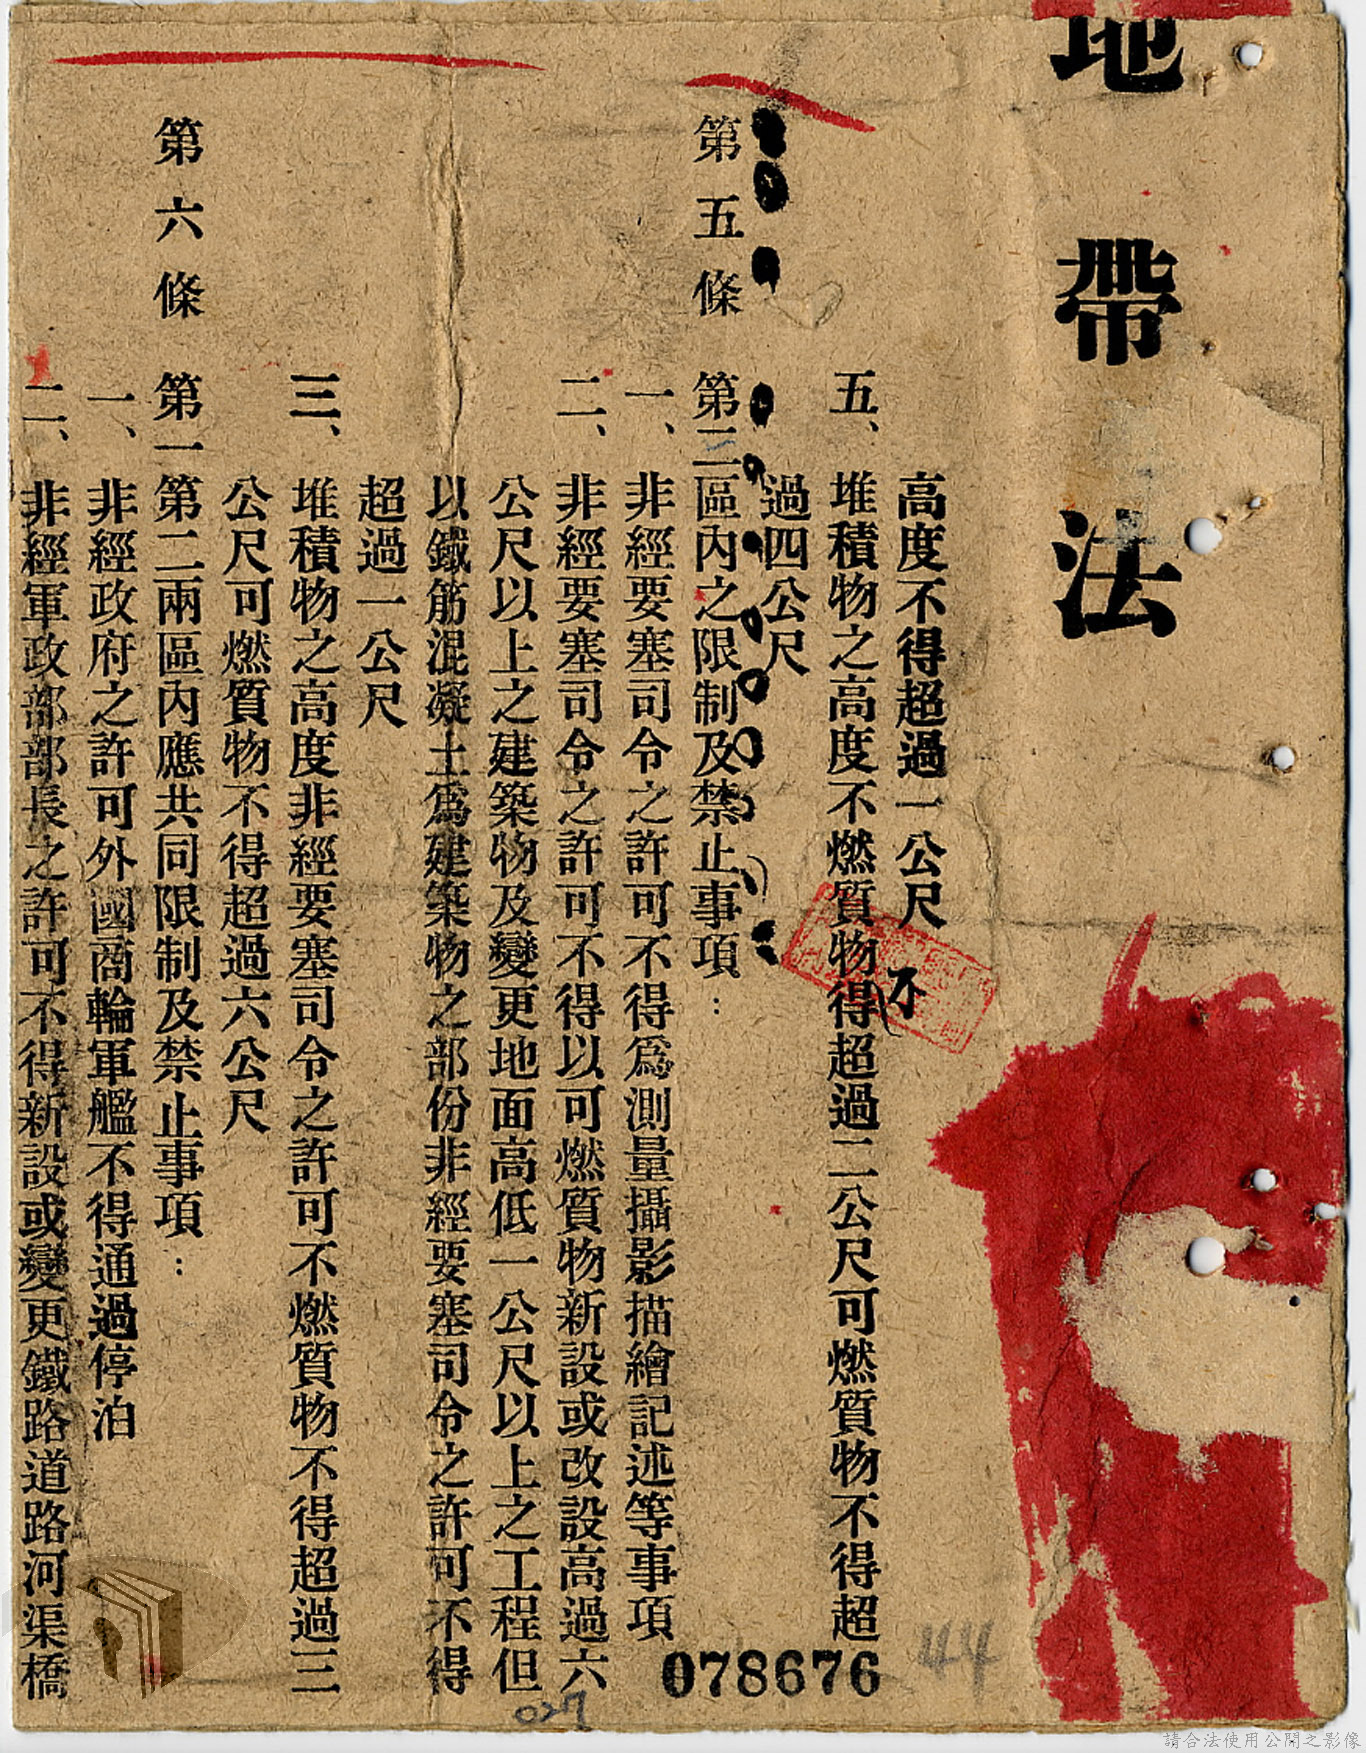 地帶法
高度不得超過一公尺
五、堆積物之高度不燃質物不得超過二公尺可燃質物不得超
過四公尺
第五條　第二區內之限制及禁止事項：
一、非經要塞司令之許可不得爲測量攝影描繪記述等事項
二、非經要塞司令之許可不得以可燃質物新設或改設高過六
公尺以上之建築物及變更地面高低一公尺以上之工程但
以鐵筋混凝土爲建築物之部份非經要塞司令之許可不得
超過一公尺
三、堆積物之高度非經要塞司令之許可不燃質物不得超過三
公尺可燃質物不得超過六公尺
第六條　第一第二兩區內應共同限制及禁止事項：
一、非經政府之許可外國商輪軍艦不得通過停泊
二、非經軍政部部長之許可不得新設或變更鐵路道路河渠橋
078676
44
027
請合法使用公開之影像